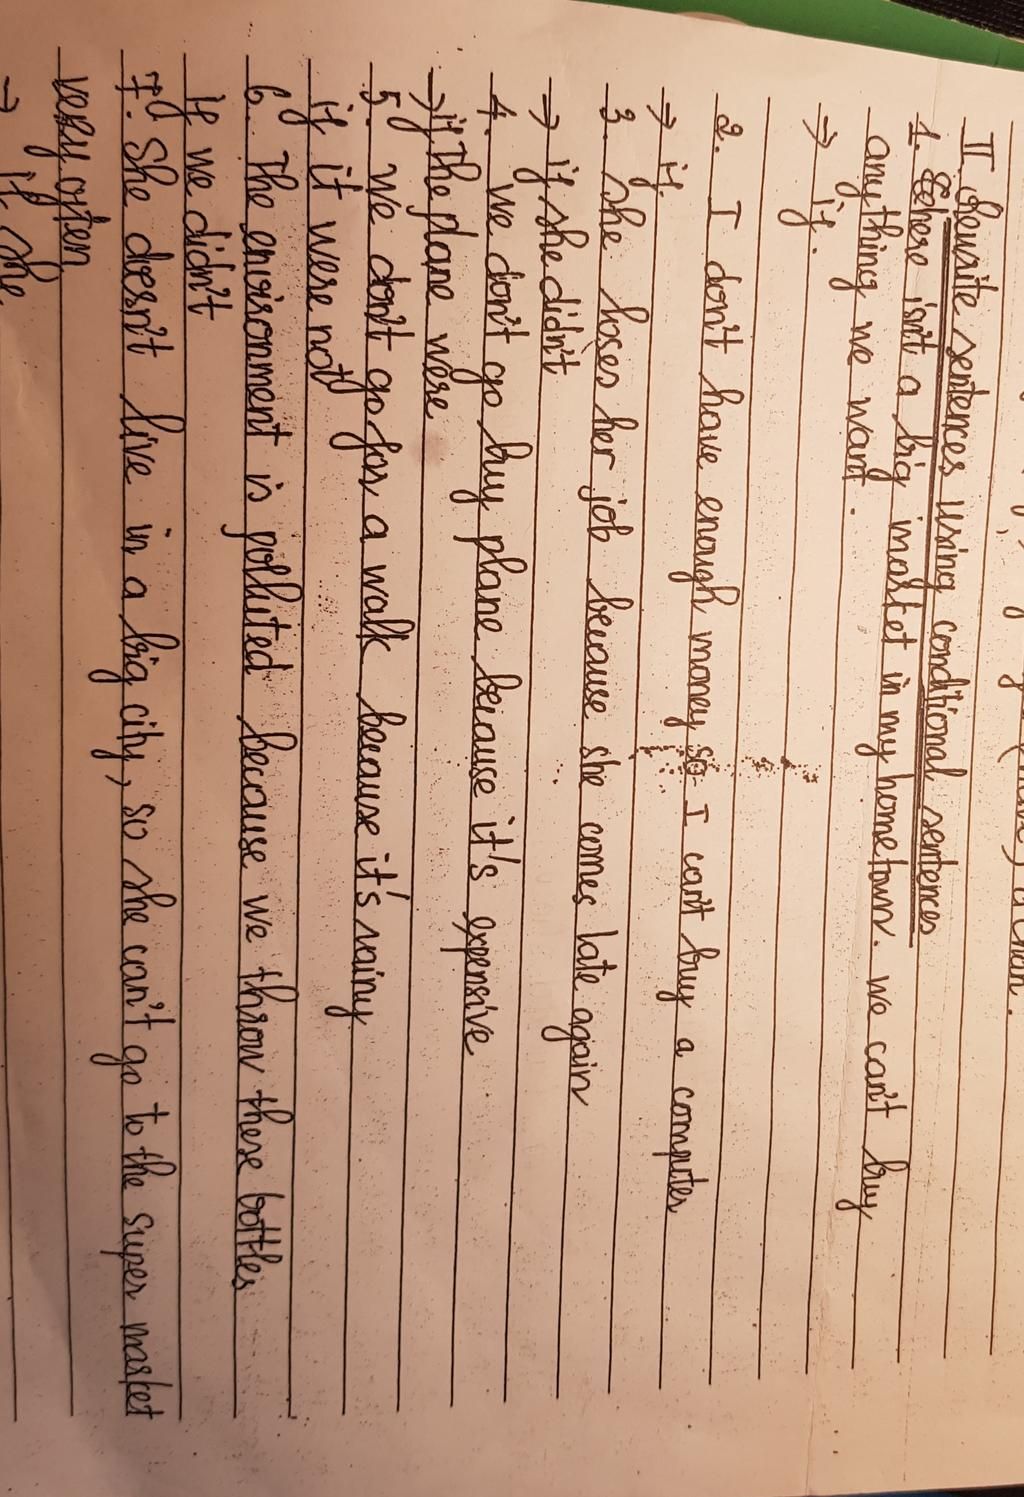 II. Rewrite sentences using conditional sentences
1. There isn't a big market in my hometown. We can't buy
anything we want.
→ if.
2. I don't have enough money so I can't buy a computer
→ if
3. She loses her job because she comes late again
→ if she didn't
4. We don't go buy plane because it's expensive
→ if the plane were
5. We don't go for a walk because it's rainy
if it were not
6. The environment is polluted because we throw these bottles
If we didn't
7. She doesn't live in a big city, so she can't go to the super market
very often
→ if she